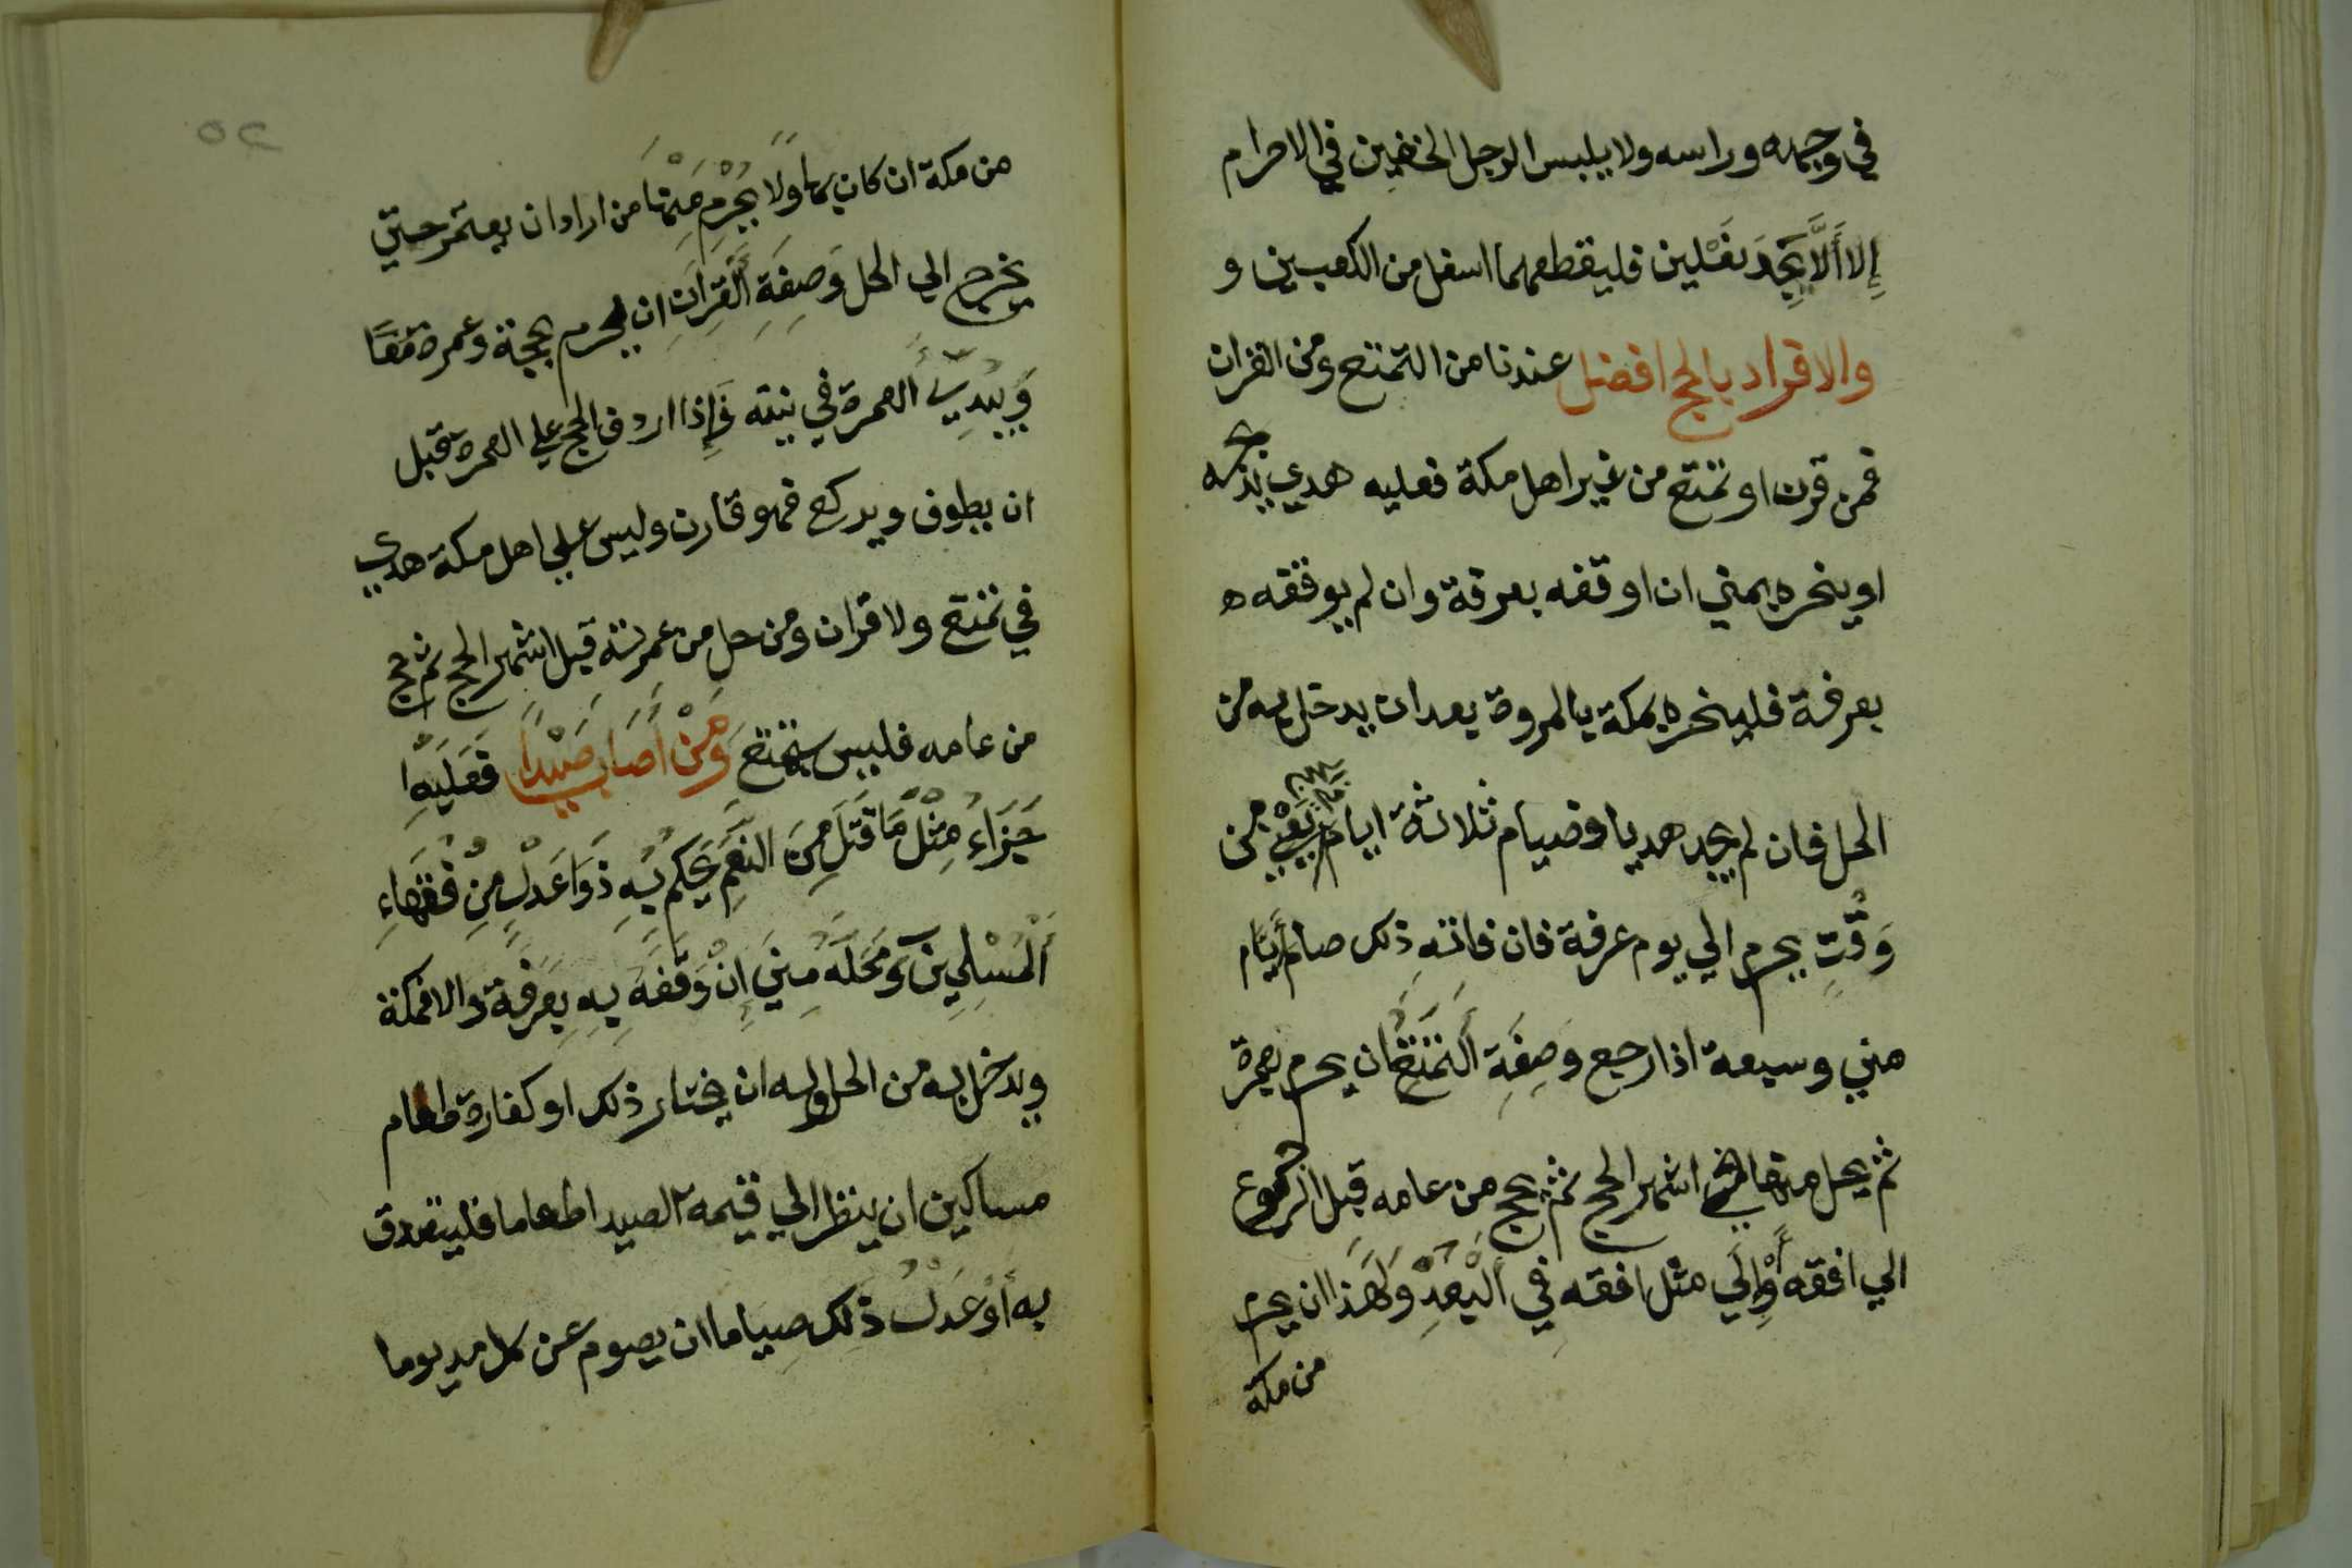 في وجهه وراسه ولا يلبس الرجل الخفين في الاحرام
إِلا أَلَّا يَجِدَ نَعْلين فليقطعهما اسفل من الكعبين و
والافراد بالحج افضل عندنا من التمتع ومن القران
فمن قرن او تمتع من غير اهل مكة فعليه هدي يذبحه
او ينحره بمني ان اوقفه بعرفة وان لم يوقفه ه
بعرفة فلينحره بمكة بالمروة بعد ان يدخل به من
الحل فان لم يجد هديا فصيام ثلاثة ايام يعني من
وَقْتِ يحرم الي يوم عرفة فان فاته ذلك صام أيام
مني وسبعة اذا رجع وَصِفَة التَّمَتع ان يحرم بعمرة
ثم يحل منها في اشهر الحج ثم يحج من عامه قبل الرجوع
الي افقه أَوْ إِلَي مثل افقه فِي الْبُعْدِ وَلهَذا ان يحرم
من مكة
٥٢
من مكة ان كان بها وَلَا يُحْرِم مِنْهَا من اراد ان يعتمر حتي
يخرج الي الحل وَصِفَةِ الْقِرَانِ ان يحرم بحجة وعمرة مَعًا
وَيَبْدِيُ العمرة في نيته فَإِذا اردف الحج علي العمرة قبل
ان يطوف ويركع فهو قارن وليس علي اهل مكة هدي
في تمتع ولا قران ومن حل من عمرته قبل اشهر الحج ثم حج
من عامه فليس بمتمتع وَمَنْ أَصَابَ صَيْداً فَعَلَيْهِ
جَزَاءُ مِثْلُ مَا قَتَلَ مِنَ النَّعَمِ يَحْكُم بِهِ ذَوَا عَدْلٍ مِنْ فُقَهَاءِ
الْمُسْلِمِينَ وَمَحَلُّهُ مِنَي إِنْ وَقَفَ بِهِ بِعَرَفَة والا فمكة
ويدخل به من الحل وله ان يختار ذلك او كفارة طعام
مساكين ان ينظر الي قيمة الصيد اطعاما فليتصدق
به أَوْ عَدْلُ ذَلِك صِياما ان يصوم عن كل مد يوما